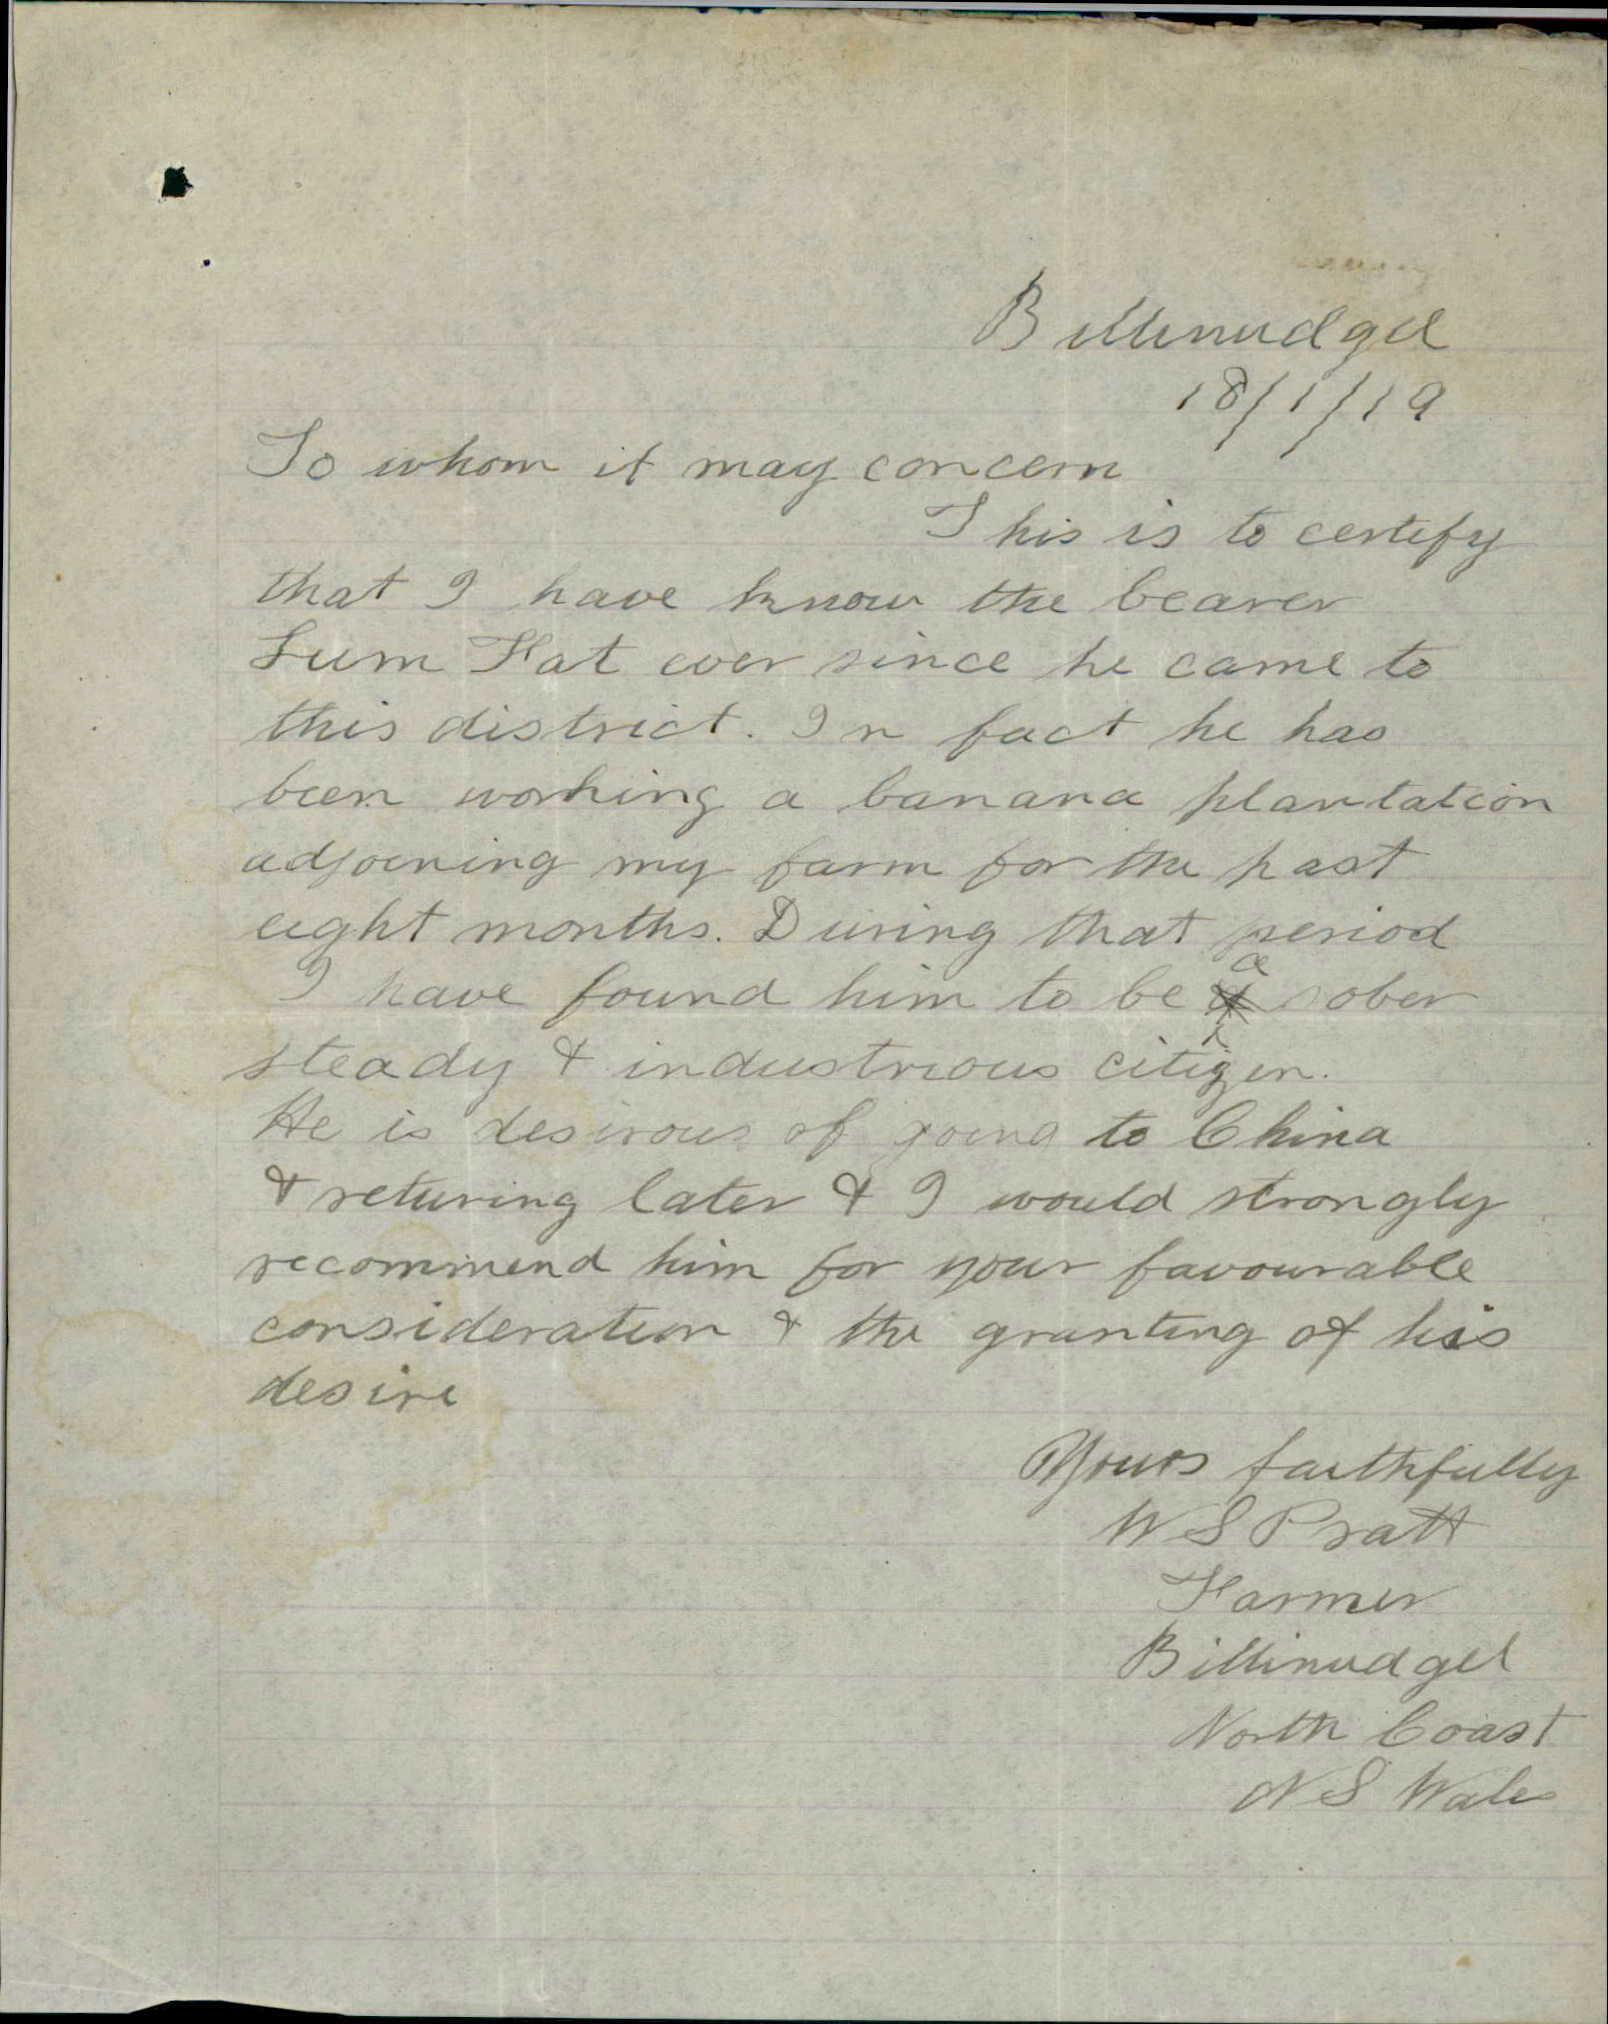 Billinudgel
18/1/19
To whom it may concern
This is to certify
that I have know the bearer
Lum Fat ever since he came to
this district. In fact he has
been working a banana plantation
adjoining my farm for the past
eight months. During that period
I have found him to be a sober
steady & industrious citizen.
He is desirous of going to China
& returing later & I would strongly
recommend him for your favourable
consideration & the granting of his
desire
Yours faithfully
W S Pratt
Farmer
Billinudgel
North Coast
N S Wales